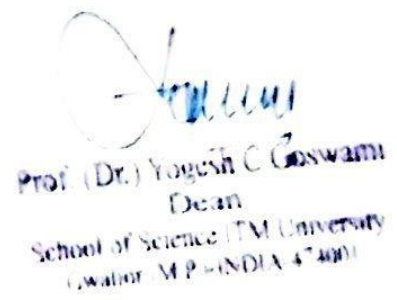 Prof. (Dr.) Yogesh C Goswami
Dean
School of Science ITM University
Gwalior M.P. - INDIA 474001